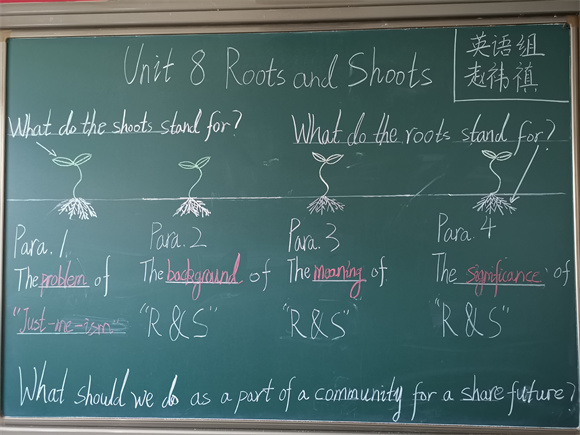 Unit 8 Roots and Shoots
英语组
赵祎祺
What do the shoots stand for?
What do the roots stand for?
Para. 1
The problem of
"Just-me-ism"
Para. 2
The background of
"R & S"
Para. 3
The meaning of
"R & S"
Para. 4
The significance of
"R & S"
What should we do as a part of a community for a share future?